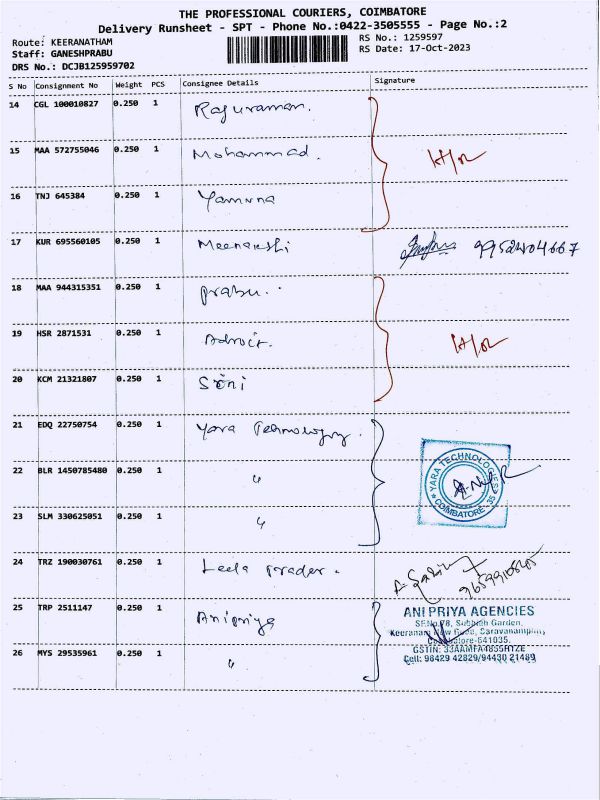 THE PROFESSIONAL COURIERS, COIMBATORE
Delivery Runsheet - SPT - Phone No.:0422-3505555 - Page No.:2
Route: KEERANATHAM
RS No.: 1259597
Staff: GANESHPRABU
RS Date: 17-Oct-2023
DRS No.: DCJB125959702
S No Consignment No Weight PCS Consignee Details Signature
14 CGL 100010827 0.250 1 Rajuraman.
15 MAA 572755046 0.250 1 Mohammad. H/R
16 TNJ 645384 0.250 1 Yamuna
17 KUR 695560105 0.250 1 Meenakshi 9952404667
18 MAA 944315351 0.250 1 Prabu.
19 HSR 2871531 0.250 1 H/R
20 KCM 21321807 0.250 1
21 EDQ 22750754 0.250 1 Yara Technology.
22 BLR 1450785480 0.250 1 "
YARA TECHNOLOGIES
COIMBATORE - 35
23 SLM 330625051 0.250 1 "
24 TRZ 190030761 0.250 1 Leela Trader.
25 TRP 2511147 0.250 1 Anipriya
ANI PRIYA AGENCIES
SF.No.78, Subbiah Garden,
Keeranam New Road, Saravanampatti,
Coimbatore-641035.
26 MYS 29535961 0.250 1 "
GSTIN: 33AAMFA4855H1ZE
Cell: 98429 42829/94430 21489